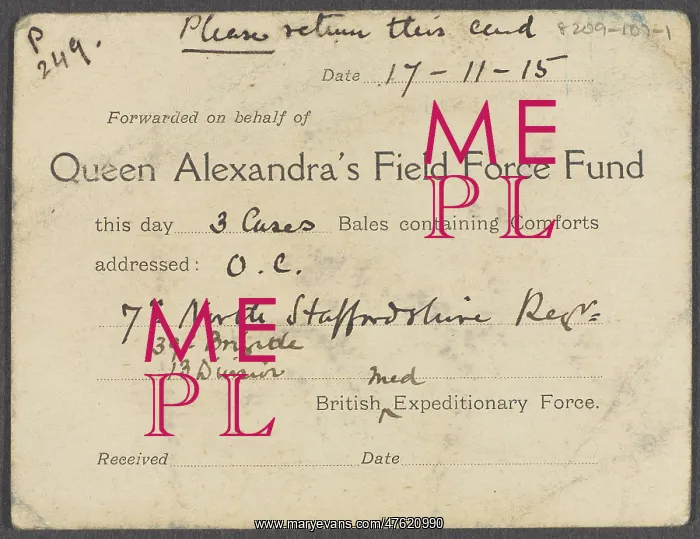 P
249.
Please return this card
8209-109-1
Date 17-11-15
Forwarded on behalf of
Queen Alexandra's Field Force Fund
this day 3 Cases Bales containing Comforts
addressed: O.C.
7th North Staffordshire Regt.
39 Brigade
13 Division
Med
British ^ Expeditionary Force.
Received Date
ME
PL
ME
PL
www.maryevans.com/47620990